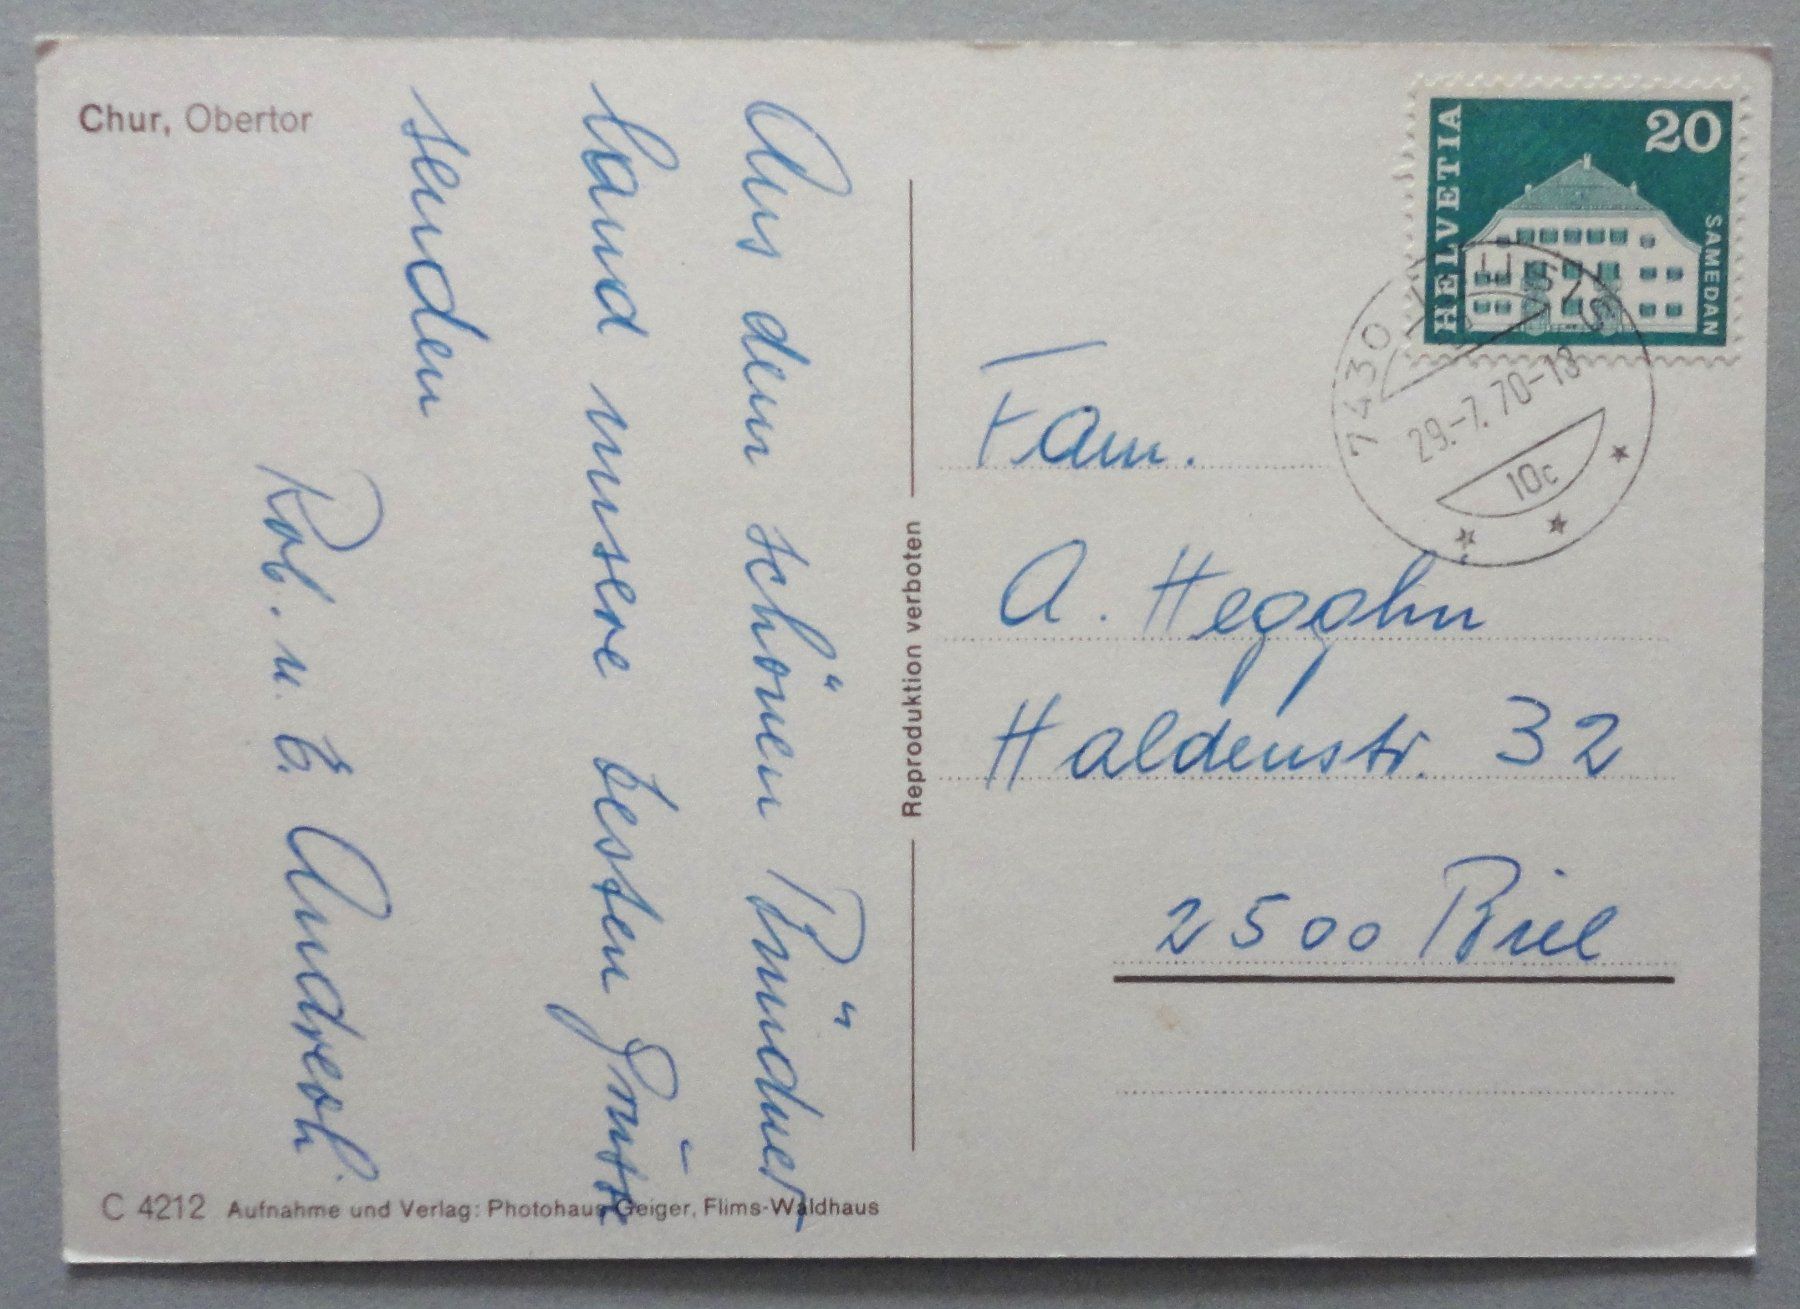 Chur, Obertor
Aus dem schönen Bündner-
land unsere besten Grüsse
senden
Rob. u. E.
Reproduktion verboten
HELVETIA
20
SAMEDAN
7430 THUSIS
29.-7.70-18
10c
Fam.
A. Heggohn
Haldenstr. 32
2500 Biel
C 4212 Aufnahme und Verlag: Photohaus Geiger, Flims-Waldhaus